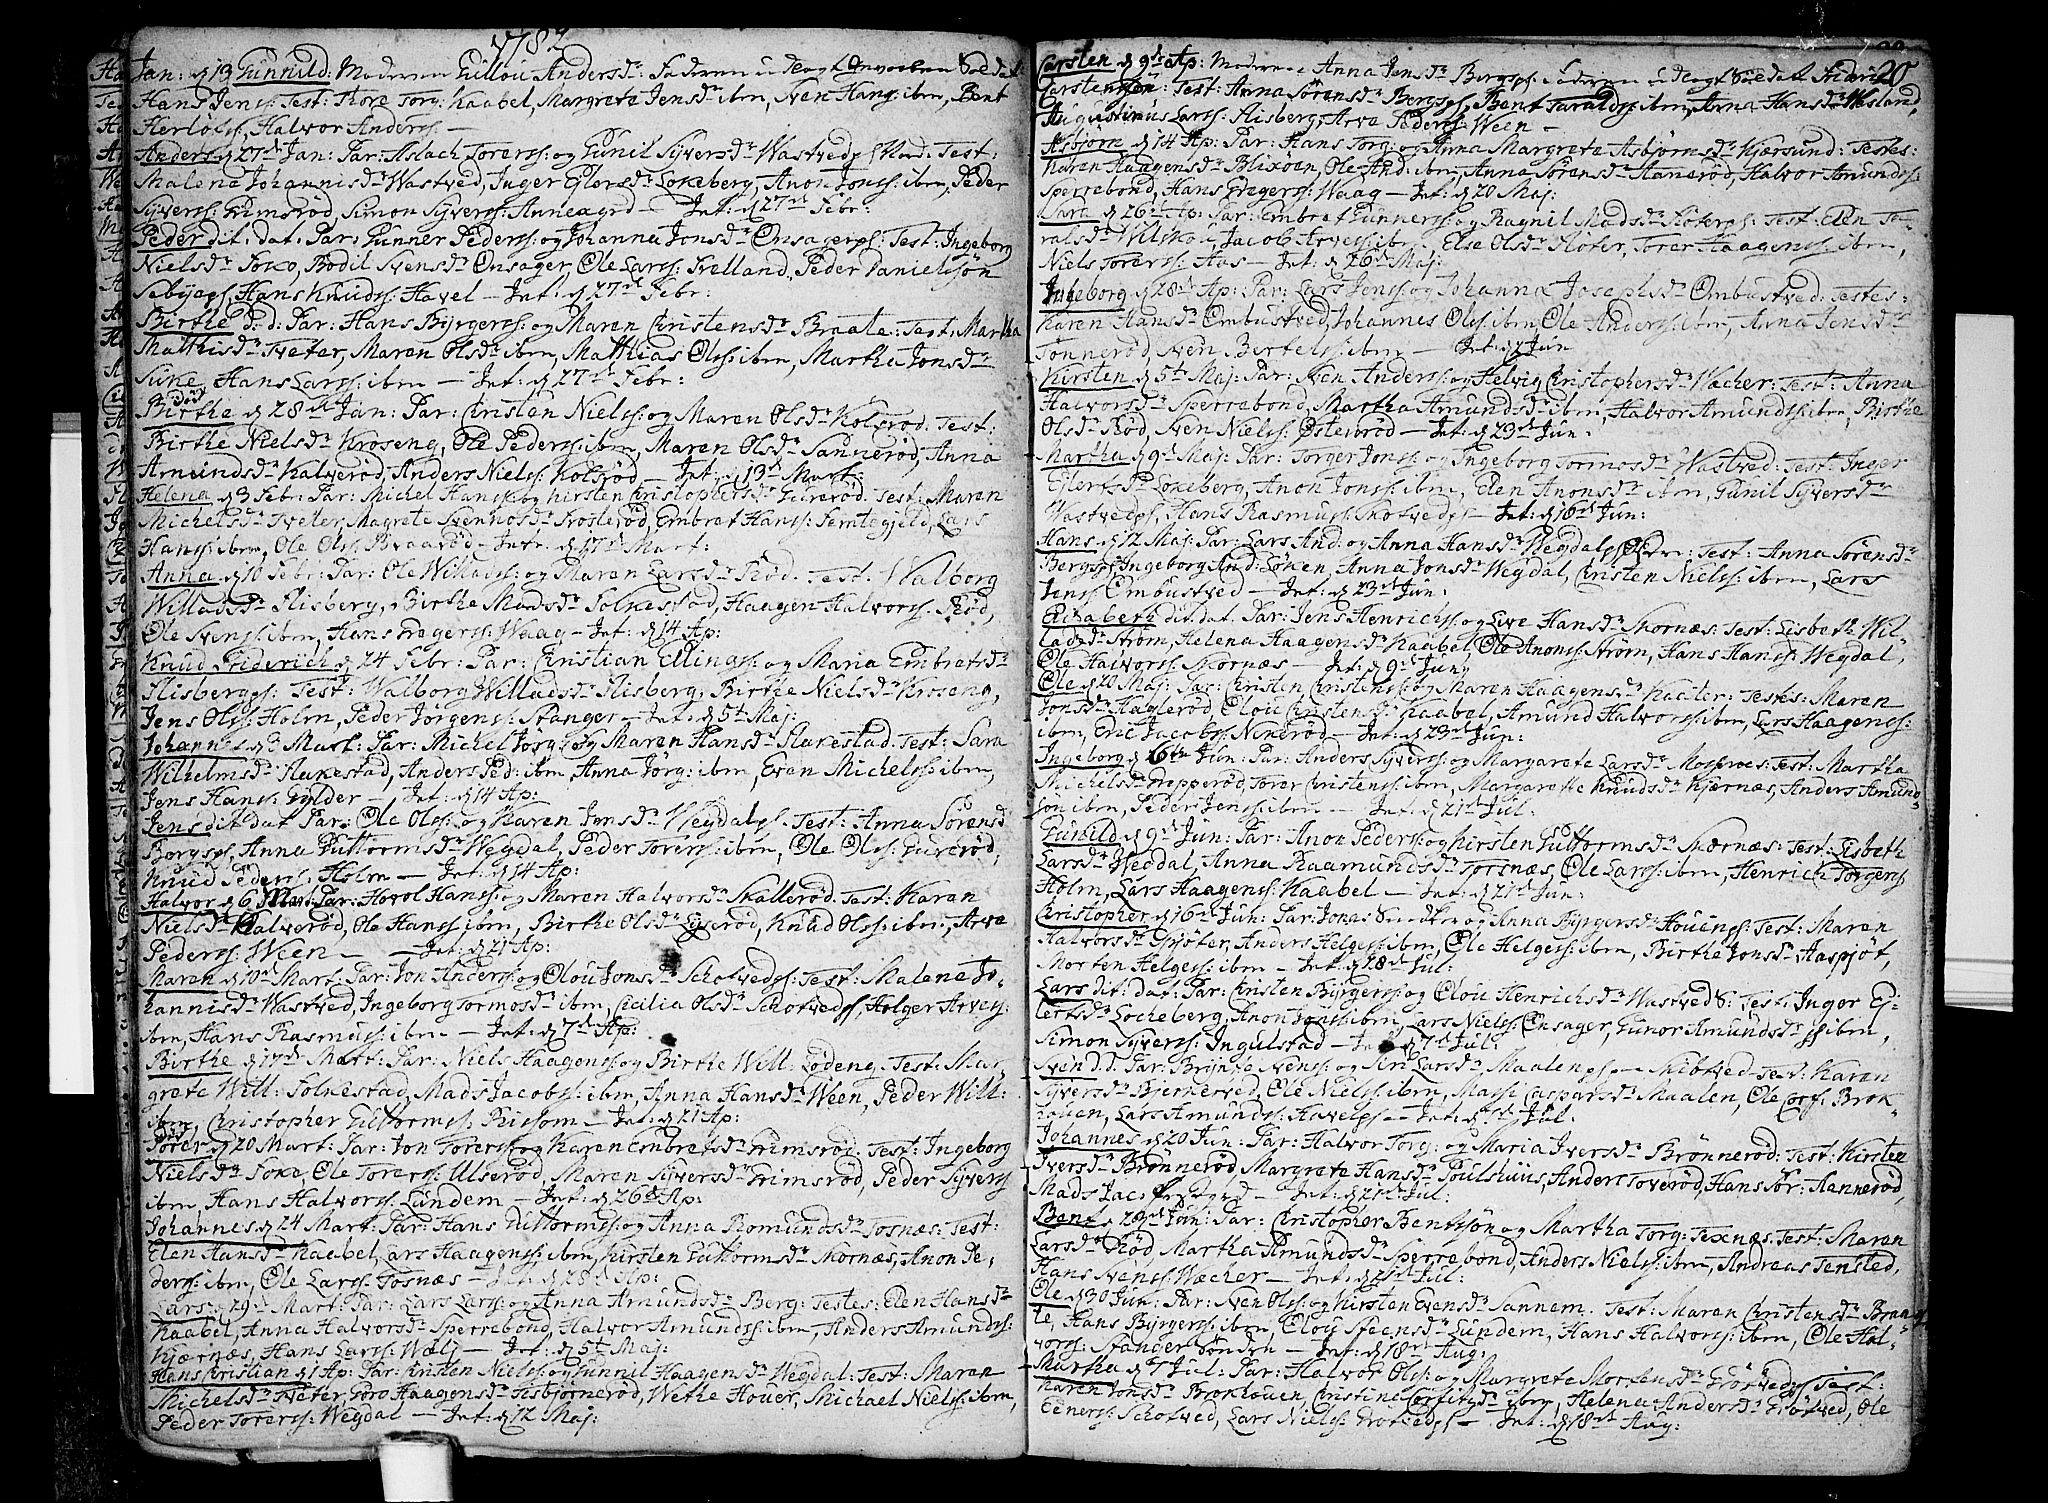 1782
Jan: d 13 Gunnild: Moderen Gillou Andersdr: Faderen udlagt Soldat
Hans Jenss: Test: Thore Torg: Kaabel, Margrete Jensdr ibm, Sven Hanss: ibm, Bent
Herlofs:, Halvor Anderss: —
Anders d 27de Jan: Par: Aslach Torerss: og Gunil Syversdr Wastvedps Test:
Malena Johannisdr Wastved, Inger Eylersdr Lokeberg, Anon Jonss: ibm, Peder
Syverss: Grimsrød, Simon Syverss: — Int: d 27de Febr:
Peder dit: dat: Par: Gunner Pederss: og Johanna Jonsdr Onsagerps: Test: Ingeborg
Nielsdr Soko, Bodil Svensdr Onsager, Ole Larss: Svelland, Peder Danielssøn
Sebyeps, Hans Knudss: Havel — Int: d 27de Febr:
Birthe d: d: Par: Hans Byrgerss: og Maren Christensdr Braate: Test: Martha
Mathisdr Tveter, Maren Olsdr ibm, Matthias Olss: ibm, Martha Jonsdr
Suke, Hans Larss: ibm — Int: d 27de Febr:
død
Birthe d 28de Jan: Par: Christen Nielss: og Maren Olsdr Kolsrød: Test:
Birthe Nielsdr Kroseng, Ole Pederss: ibm, Maren Olsdr Sannerød, Anna
Amundsdr Kalverød, Anders Nielss: Kolsrød — Int: d 13de Mart:
Helena d 3 Febr: Par: Michel Hanss: og Kirsten Christophersdr Gurerød: Test: Maren
Michelsdr Tveter, Magrete Svennosdr Frosterød, Embret Hanss: Femtegjeld, Lars
Hanss: ibm, Ole Olss: Braarød — Int: d 17de Mart:
Anna d 10 Febr: Par: Ole Willadss: og Maren Larsdr Rød. Test: Walborg
Willadsdr Flisberg, Birthe Madsdr Folkestad, Haagen Halvorss: Rød,
Ole Svenss: ibm, Hans Gregerss: Waag — Int: d 14 Ap:
Knud Friderich d 24 Febr: Par: Christian Ellingss: og Maria Embretsdr
Flisbergps: Test: Walborg Willadsdr Flisberg, Birthe Nielsdr Kroseng,
Jens Olss: Holm, Peder Jørgens: Stanger — Int: d 5te Maj:
d 3 Mart: Par: Michel Jørg: og Maren Hansdr Flakestad. Test: Sara
Wilhelmsdr Flakestad, Anders Ped: ibm, Anna Jørg: ibm, Even Michelss: ibm,
Jens Hanss: Gylder — Int: d 14 Ap:
Jens dit dat Par: Ole Olss: og Karen Jonsdr Wegdalps: Test: Anna Sørensdr
Borgsps, Anna Guttormsdr Wegdal, Peder Torerss: ibm, Ole Olss: Gurerød,
Knud Pederss: Holm — Int: d 14 Ap:
Halvor d 6 Mart: Par: Hovol Hanss: og Maren Halvorsdr Skallerød. Test: Karen
Nielsdr Kalverød, Ole Hanss: ibm, Birthe Olsdr Lyserød, Knud Olss: ibm, Arve
Pederss: Ween — Int: d 21 Ap:
Maren d 10de Mart: Par: Jon Anderss: og Olou Jonsdr Schotvedps: Test: Malene Jo-
hannisdr Wastved, Ingeborg Tormosdr ibm, Cecilia Olsdr Schotvedps, Holger Arvess:
ibm, Hans Rasmuss: ibm — Int: d 7de Ap:
Birthe d 17de Mart: Par: Niels Haagenss: og Birthe Will: Lødeng: Test: Mar-
grete Will: Folkestad, Mads Jacobss: ibm, Anna Hansdr Ween, Peder Will:
ibm, Christopher Guttormss: Risom — Int: d 21 Ap:
død
Torer d 20 Mart: Par: Jon Torerss: og Karen Embretsdr Grimsrød: Test: Ingeborg
Nielsdr Soke, Ole Torerss: Ulserød, Maren Syversdr Grimsrød, Peder Syverss
ibm, Hans Halvorss: Lundem — Int: d 26de Ap:
Johannes d 24 Mart: Par: Hans Guttormss: og Anna Romundsdr Tosnæs: Test:
Elen Hansdr Kaabel, Lars Haagenss: ibm, Kirsten Guttormsdr Skornæs, Anon Pe-
derss: ibm, Ole Larss: Tosnæs — Int: d 28de Ap:
Lars d 29de Mart: Par: Lars Larss: og Anna Amundsdr Berg: Testes: Elen Hansdr
Kaabel, Anna Halvorsdr Sperrebond, Halvor Amundss: ibm, Anders Amundss:
Kjærnæs, Hans Larss: — Int: d 5te Maj:
Hans Christian d 1 Ap: Par: Christen Nielss: og Gunnil Haagensdr Wegdal: Test: Maren
Michelsdr Tveter, Goro Haagensdr Asbjørnerød, Wethe Houer, Michael Nielss: ibm,
Peder Torerss: Wegdal — Int: d 12 Maj:
20
Carsten d 9de Ap: Moderen Anna Jensdr Bergsps: Faderen udlagt Soldat
Carstenssøn: Test: Anna Sørensdr Bergsps, Bent Taraldss: ibm, Anna Hansdr
Augustinus Larss: Flisberg, Arve Pederss: Ween —
Asbjørn d 14 Ap: Par: Hans Torg: og Anna Margrete Asbjørnsdr Kjærsund: Testes:
Karen Haagensdr Blixøen, Ole And: ibm, Anna Sørensdr Hannerød, Halvor Amundss:
Sperrebond, Hans Gregerss: Waag — Int: d 20 Maj:
Sara d 26de Ap: Par: Embret Gunnerss: og Ragnil Madsdr Floterps: Test: Elen Ta-
ralsdr, Jacob Arvess: ibm, Else Olsdr Floter, Torer Haagenss: ibm,
Niels Torerss: Aas — Int: d 26de Maj:
Ingeborg d 28de Ap: Par: Lars Jenss: og Johanna Josephsdr Ombustved: Testes:
Karen Hansdr Ombustved, Johannes Olss: ibm, Ole Anderss: ibm, Anna Jensdr
Tonnerød, Sven Bertelss: ibm — Int: d 2 Jun
Kirsten d 5te Maj: Par: Sven Anderss: og Helvig Christophersdr Wæcher: Test: Anna
Halvorsdr Sperrebond, Martha Amundsdr ibm, Halvor Amundss: ibm, Birthe
Olsdr Rød, Sven Nielss: Østenrød — Int: d 23de Jun:
Martha d 9de Maj: Par: Torger Jonss: og Ingeborg Tormosdr Wastved: Test: Inger
Eylertsdr Lokeberg, Anon Jonss: ibm, Elen Anonsdr ibm, Gunil Syversdr
Wastvedps, Hans Rasmuss: Skotvedps — Int: d 16de Jun:
Hans d 12 Maj: Par: Lars And: og Anna Hansdr Wegdalps: Test: Anna Sørensdr
Bergsps, Ingeborg And: Løken, Anna Jonsdr Wegdal, Christen Nielss: ibm, Lars
Jenss: Ombustved — Int: d 23de Jun:
Elisabeth dit: dat: Par: Jens Henrichss: og Live Hansdr Skornæs: Test: Lisbeth Wil-
ladsdr Strøm, Helena Haagensdr Kaabel, Ole Anonss: Strøm, Hans Hanss: Wegdal,
Ole Halvorss: Skornæs — Int: d 9de Jun:
Ole d 20 Maj: Par: Christen Christenss: og Maren Haagensdr Kaater: Testes: Maren
Jonsdr Haglerød, Olou Christensdr Kaabel, Amund Halvorss: ibm, Lars Haagenss:
ibm, Eric Jacobss: Ninerød — Int: d 23de Jun:
Ingeborg d 6te Jun: Par: Anders Syverss: og Margarete Larsdr Mosnæs: Test: Martha
Michelsdr Trepperød, Torer Christenss: ibm, Margarethe Knudsdr Kjærnæs, Anders Amund-
søn ibm, Peder Jenss: ibm — Int: d 21de Jul:
Gunild d 9de Jun: Par: Anon Pederss: og Kirsten Guttormsdr Skornæs: Test: Lisbeth
Larsdr Wegdal, Anna Raamundsdr Torsnæs, Ole Larss: ibm, Henrich Torgerss:
Holm, Lars Haagenss: Kaabel — Int: d 21de Jun:
Christopher d 16de Jun: Par: Jonas Smedker og Anna Byrgersdr Houengs: Test: Maren
Halvorsdr Spjøter, Anders Helgess: ibm, Ole Helgess: ibm, Birthe Jonsdr Aaspjøt,
Morten Helgess: ibm — Int: d 28de Jul:
Lars dit: dat: Par: Christen Byrgerss: og Olou Henrichsdr Wastveds: Test: Inger Ey-
lertsdr Locheberg, Anon Jonss: ibm, Lars Nielss: Onsager, Gunor Amundsdr ibm,
Simon Syverss: Ingulstad — Int: d 7de Jul:
Svend d. d. Par: Brynjo Svenss: og Siri Larsdr Maalengs — Skibtved Test: Karen
Syversdr Bjernerød, Ole Nielss: ibm, Masse Caspersdr Maalen, Ole Corf: Brok-
houen, Lars Amundss: Havelps — Int: d Jul:
Johannes d 20 Jun: Par: Halvor Torg: og Maria Iversdr Brønnerød: Test: Kirsten
Iversdr Brønnerød, Margrete Hansdr Poulshuus, Anders Toverød, Hans Sør: Hannerød,
Mads Jac: — Int: d 21de Jul:
Bent d 29de Jun: Par: Christopher Bentssøn og Martha Torg: Texnæs: Test: Maren
Larsdr Rød, Martha Amundsdr Sperrebond, Anders Nielss: ibm, Andreas Tensted,
Hans Svenss: Wæcher — Int: d 21de Jul:
Ole d 30 Jun: Par: Sven Olss: og Kirsten Evensdr Sannem. Test: Maren Christensdr Braa-
te, Hans Byrgerss: ibm, Olou Steensdr Lundem, Hans Halvorss: ibm, Ole Hal-
vorss: Stanger Sønden — Int: d 18de Aug:
Martha d Jul: Par: Halvor Olss: og Margrete Mortensdr Grøtvedps: Test:
Karen Jonsdr Brokhouen, Christine Corfitzdr ibm, Helena Andersdr Grøtved, Ole
Eenerss: Schotved, Lars Nielss: Grøtvedps — Int: d 18de Aug: